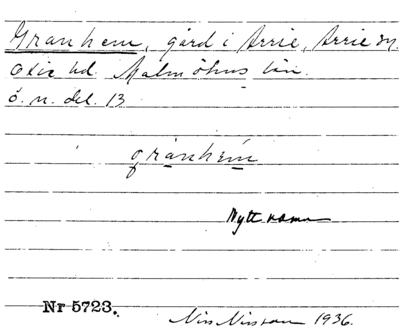 Granhem, gård i Arrie, Arrie sn.
Oxie hd. Malmöhus län.
ö. n. del. 13
gránhèm
Nytt namn
Nr 5723.
Nils Nilsson 1936.